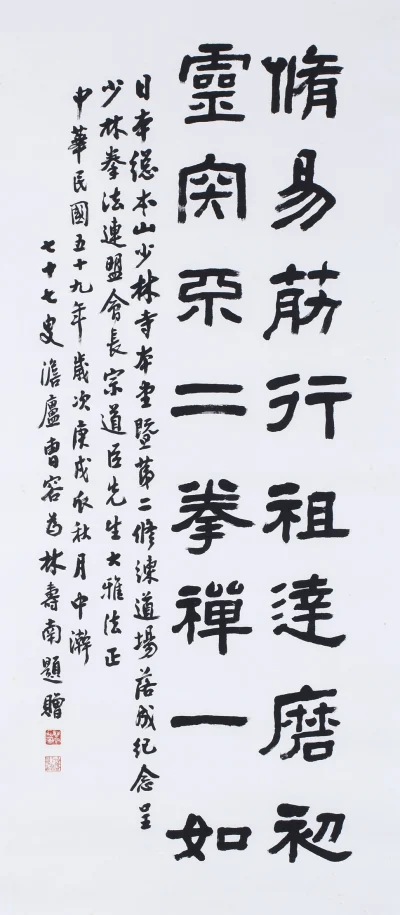 脩易筋行祖達磨初
靈宍不二拳禪一如
日本總本山少林寺本堂暨第二修練道場落成紀念呈
少林拳法連盟會長宗道臣先生大雅法正
中華民國五十九年歲次庚戌秋月中澣
七十七叟澹廬曹容為林壽南題贈